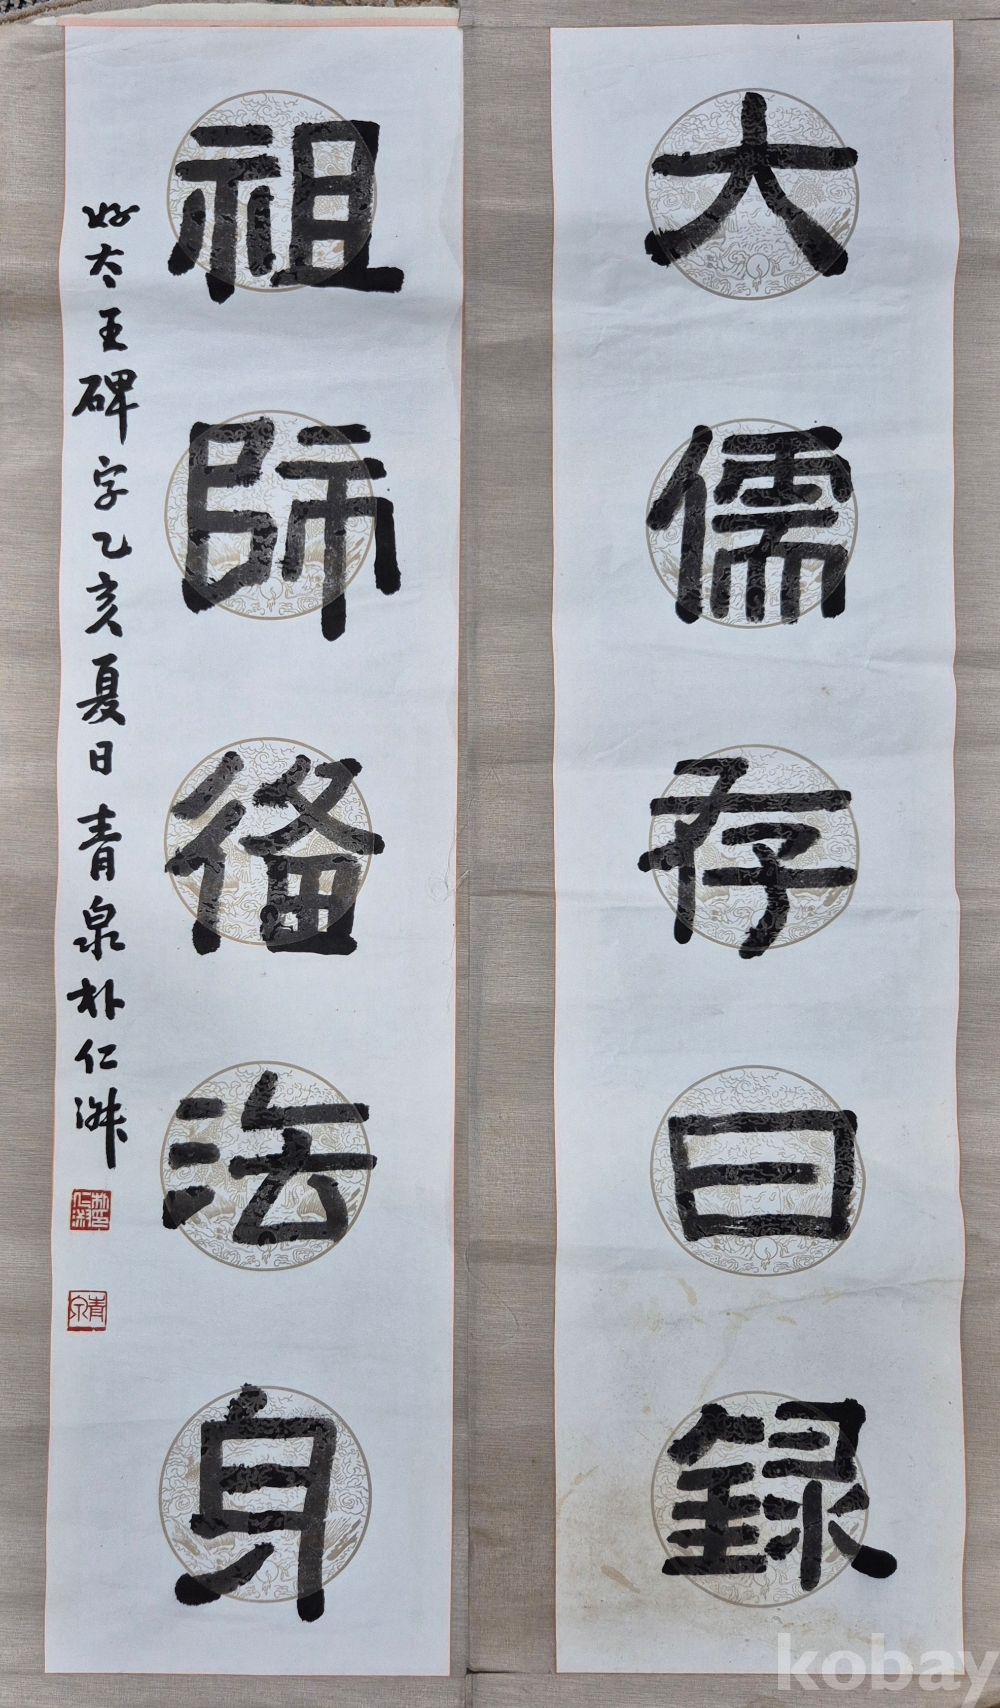 大儒存日録
祖師備法身
好太王碑字乙亥夏日青泉朴仁淑
朴仁淑印
青泉
kobay